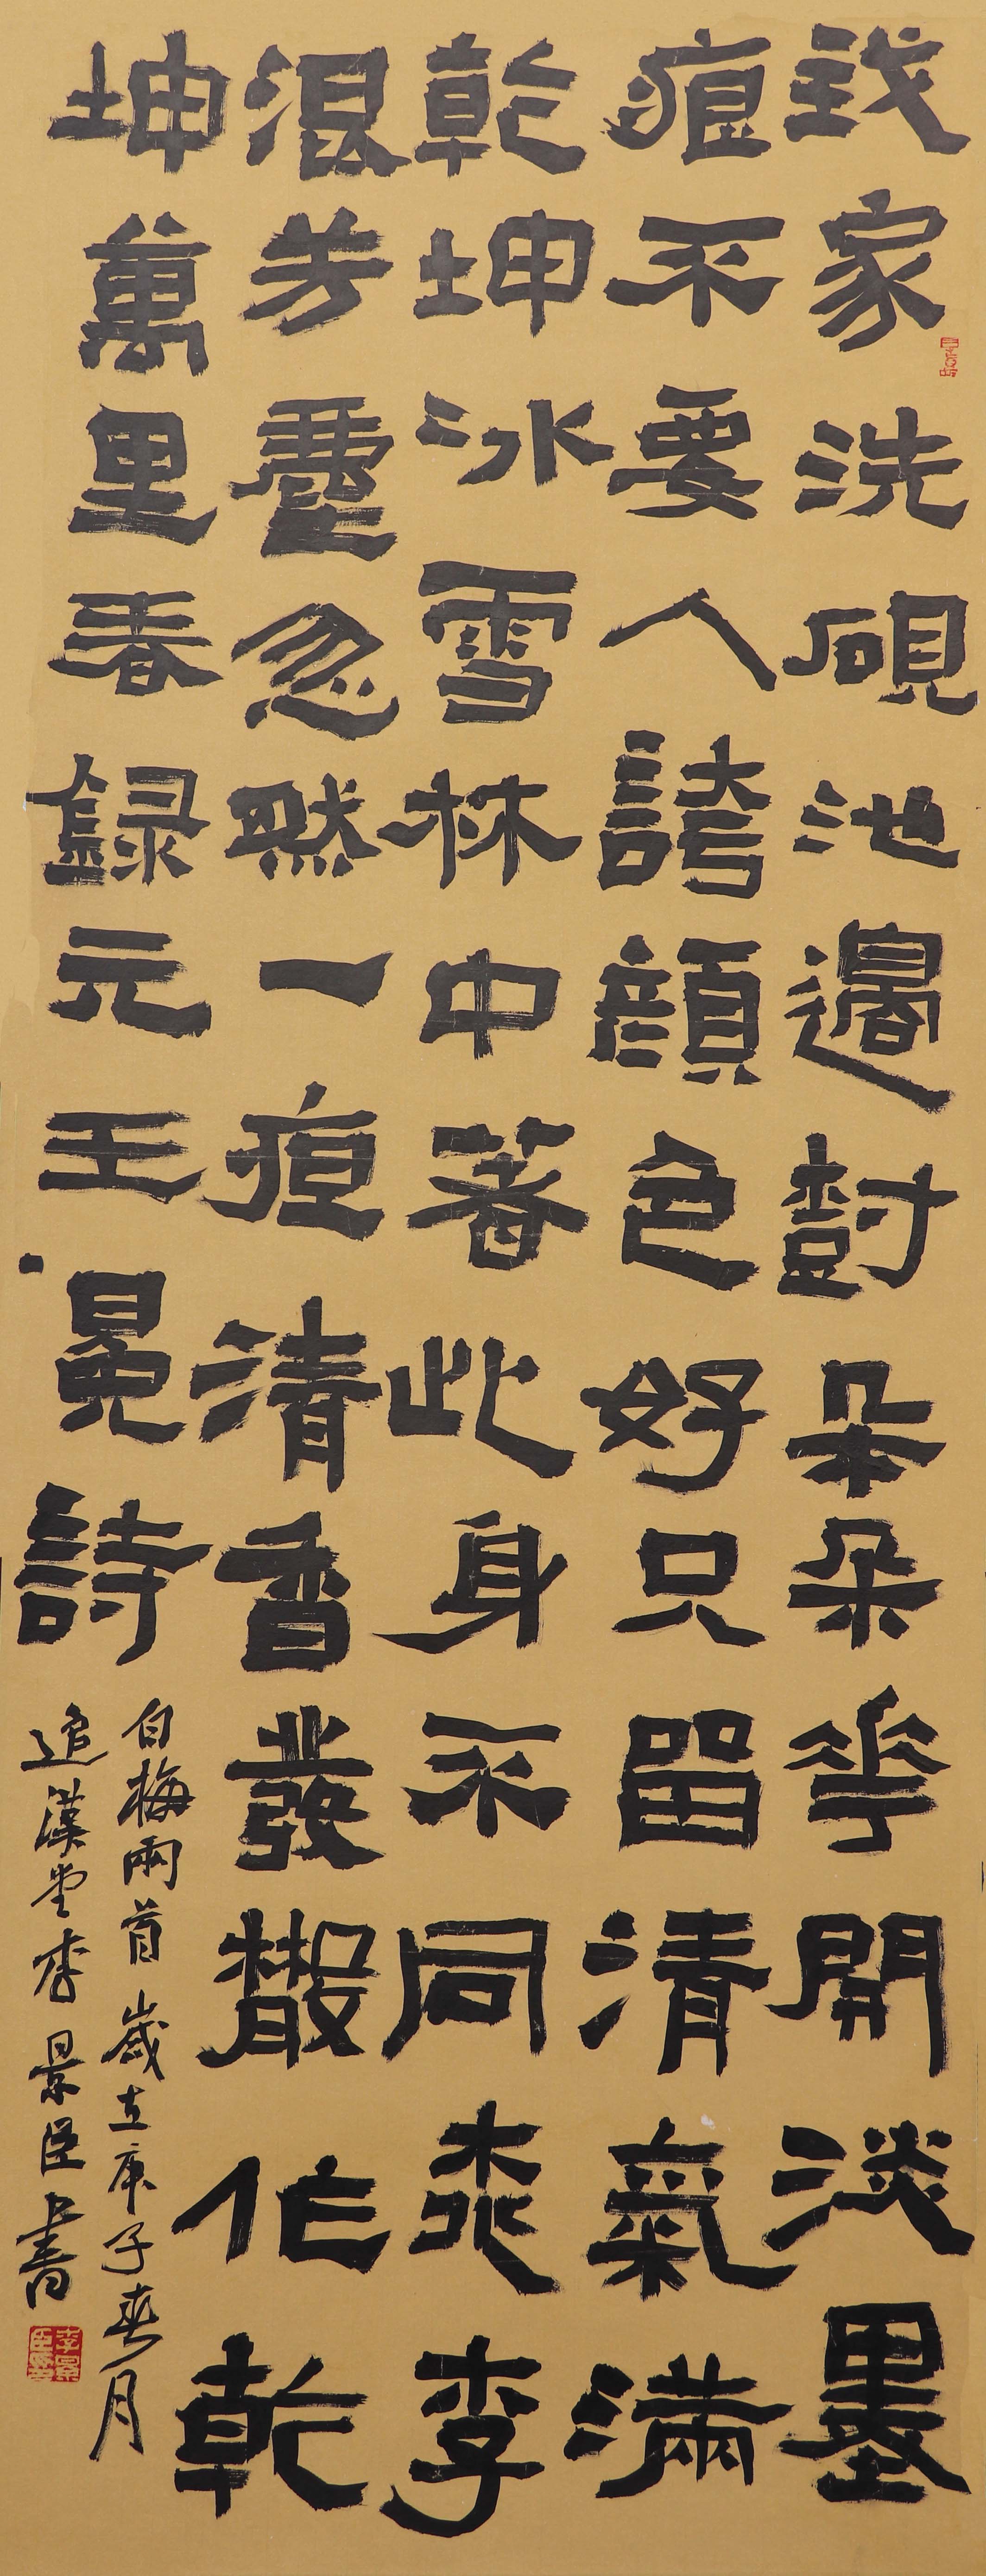 我家洗硯池邊樹朵朵華開淡墨
痕不要人誇顏色好只留清氣滿
乾坤冰雪林中著此身不同桃李
混芳塵忽然一痕清香發散作乾
坤萬里春錄元王冕詩
白梅兩首歲在庚子春月
追漢堂李景臣書
李景臣印